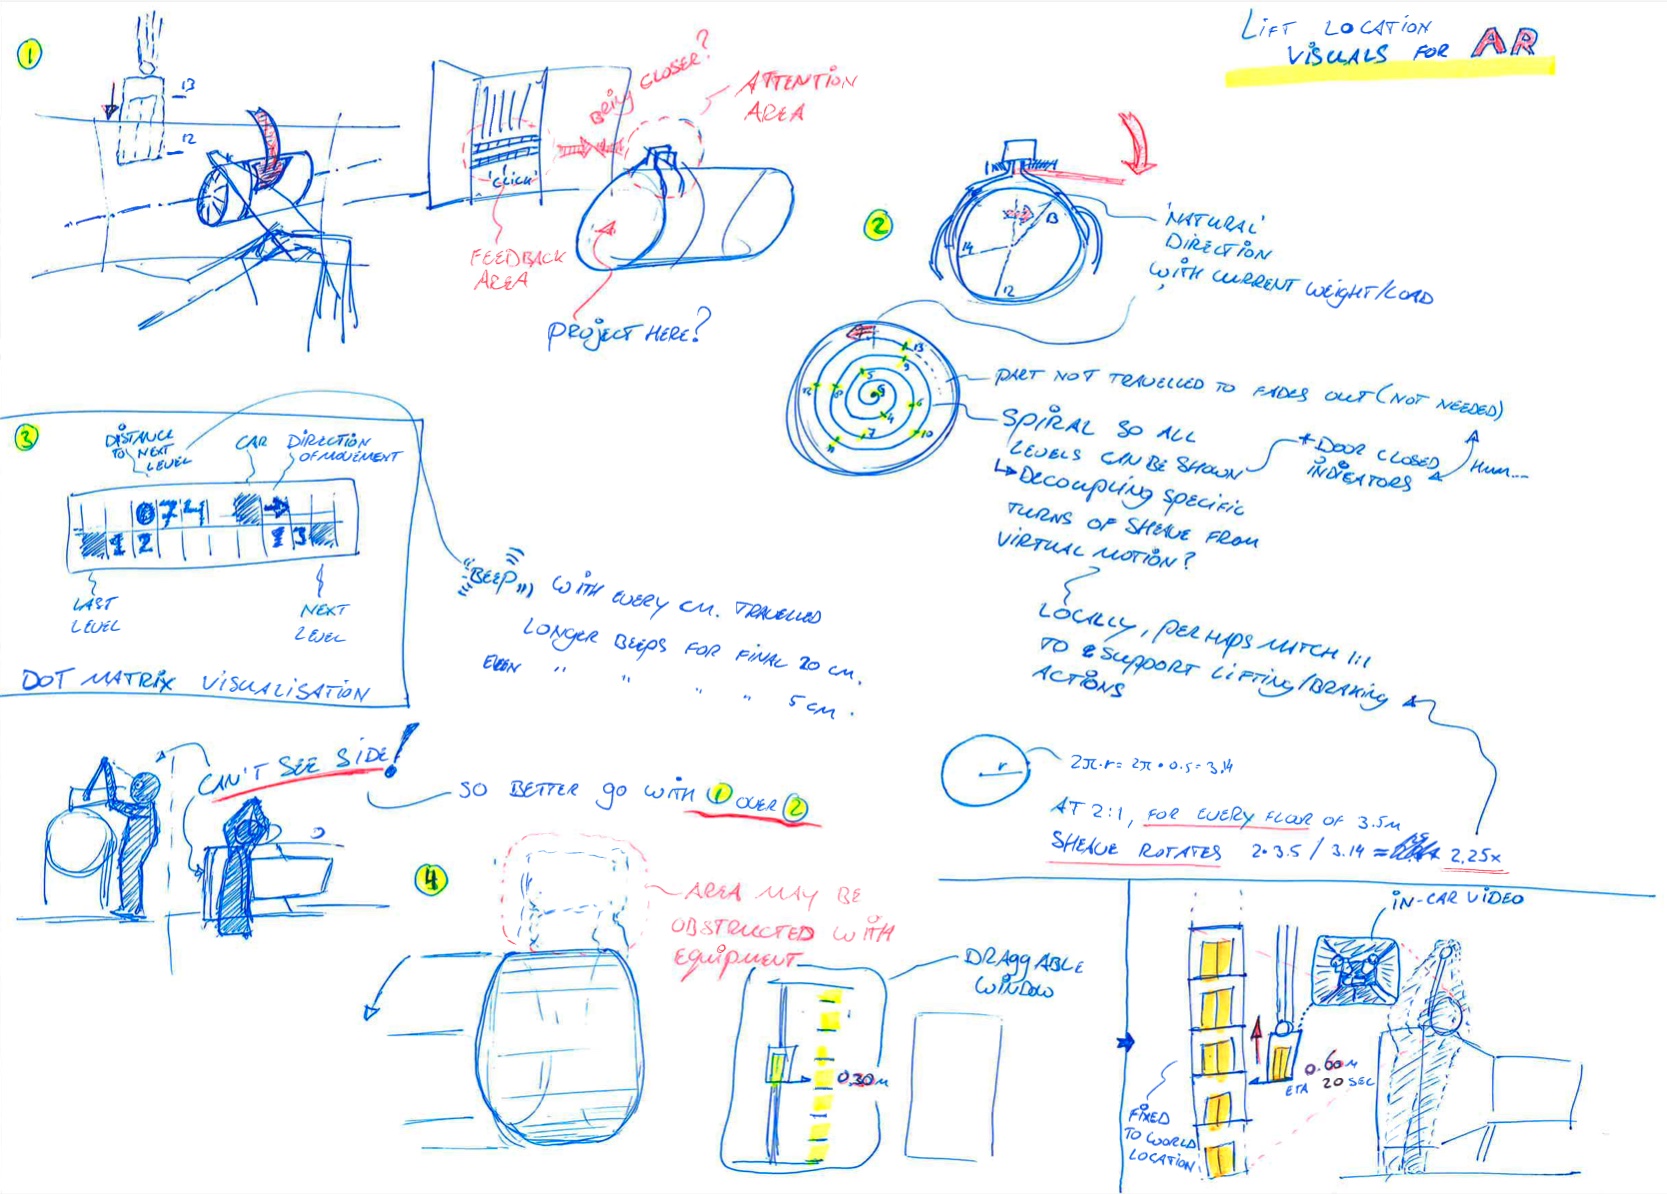 LIFT LOCATION
VISUALS FOR AR
1
13
12
BRING CLOSER?
ATTENTION
AREA
'CLICK'
FEEDBACK
AREA
PROJECT HERE?
2
13
14
12
'NATURAL'
DIRECTION
WITH CURRENT WEIGHT/LOAD
13
9
5
6
4
7
10
11
PART NOT TRAVELLED TO FADES OUT (NOT NEEDED)
SPIRAL SO ALL
LEVELS CAN BE SHOWN
+ DOOR CLOSED
INDICATORS
HUM...
↳ DECOUPLING SPECIFIC
TURNS OF SHEAVE FROM
VIRTUAL MOTION?
LOCALLY, PERHAPS MATCH !!!
TO SUPPORT LIFTING/BRAKING
ACTIONS
3
DISTANCE
TO NEXT
LEVEL
CAR
DIRECTION
OF MOVEMENT
0 74 →
12 13
LAST
LEVEL
NEXT
LEVEL
DOT MATRIX VISUALISATION
"BEEP" WITH EVERY CM. TRAVELLED
LONGER BEEPS FOR FINAL 20 CM.
EVEN " " " " 5 CM.
CAN'T SEE SIDE!
SO BETTER GO WITH 1 OVER 2
r
2π·r = 2π · 0.5 = 3.14
AT 2:1, FOR EVERY FLOOR OF 3.5M
SHEAVE ROTATES 2·3.5 / 3.14 = 2.25x
4
AREA MAY BE
OBSTRUCTED WITH
EQUIPMENT
DRAGGABLE
WINDOW
0.30M
IN-CAR VIDEO
0.60M
ETA 20 SEC
FIXED
TO WORLD
LOCATION